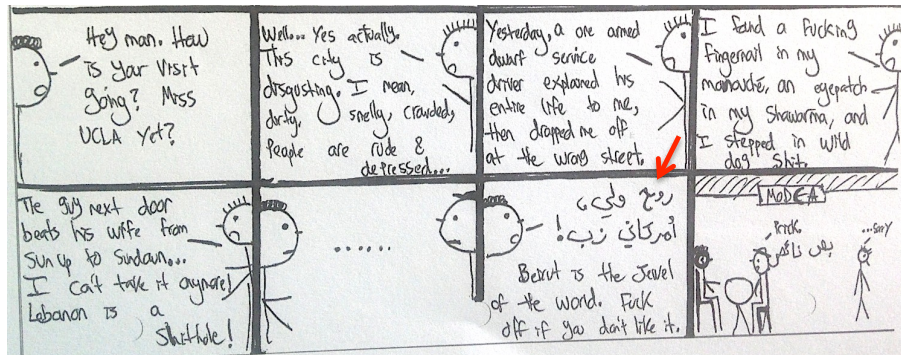 Hey man. How
is your visit
going? Miss
UCLA yet?
Well... Yes actually.
This city is
disgusting. I mean,
dirty, smelly, crowded,
people are rude &
depressed...
Yesterday, a one armed
dwarf service
driver explained his
entire life to me,
then dropped me off
at the wrong street.
I found a fucking
fingernail in my
manouché, an eyepatch
in my Shawarma, and
I stepped in wild
dog shit.
The guy next door
beats his wife from
sun up to sundown...
I can't take it anymore!
Lebanon is a
Shithole!
.......
روح ولي،
أمركاني زب!
Beirut is the Jewel
of the world. Fuck
off if you don't like it.
MODCA
Prick
...Sorry